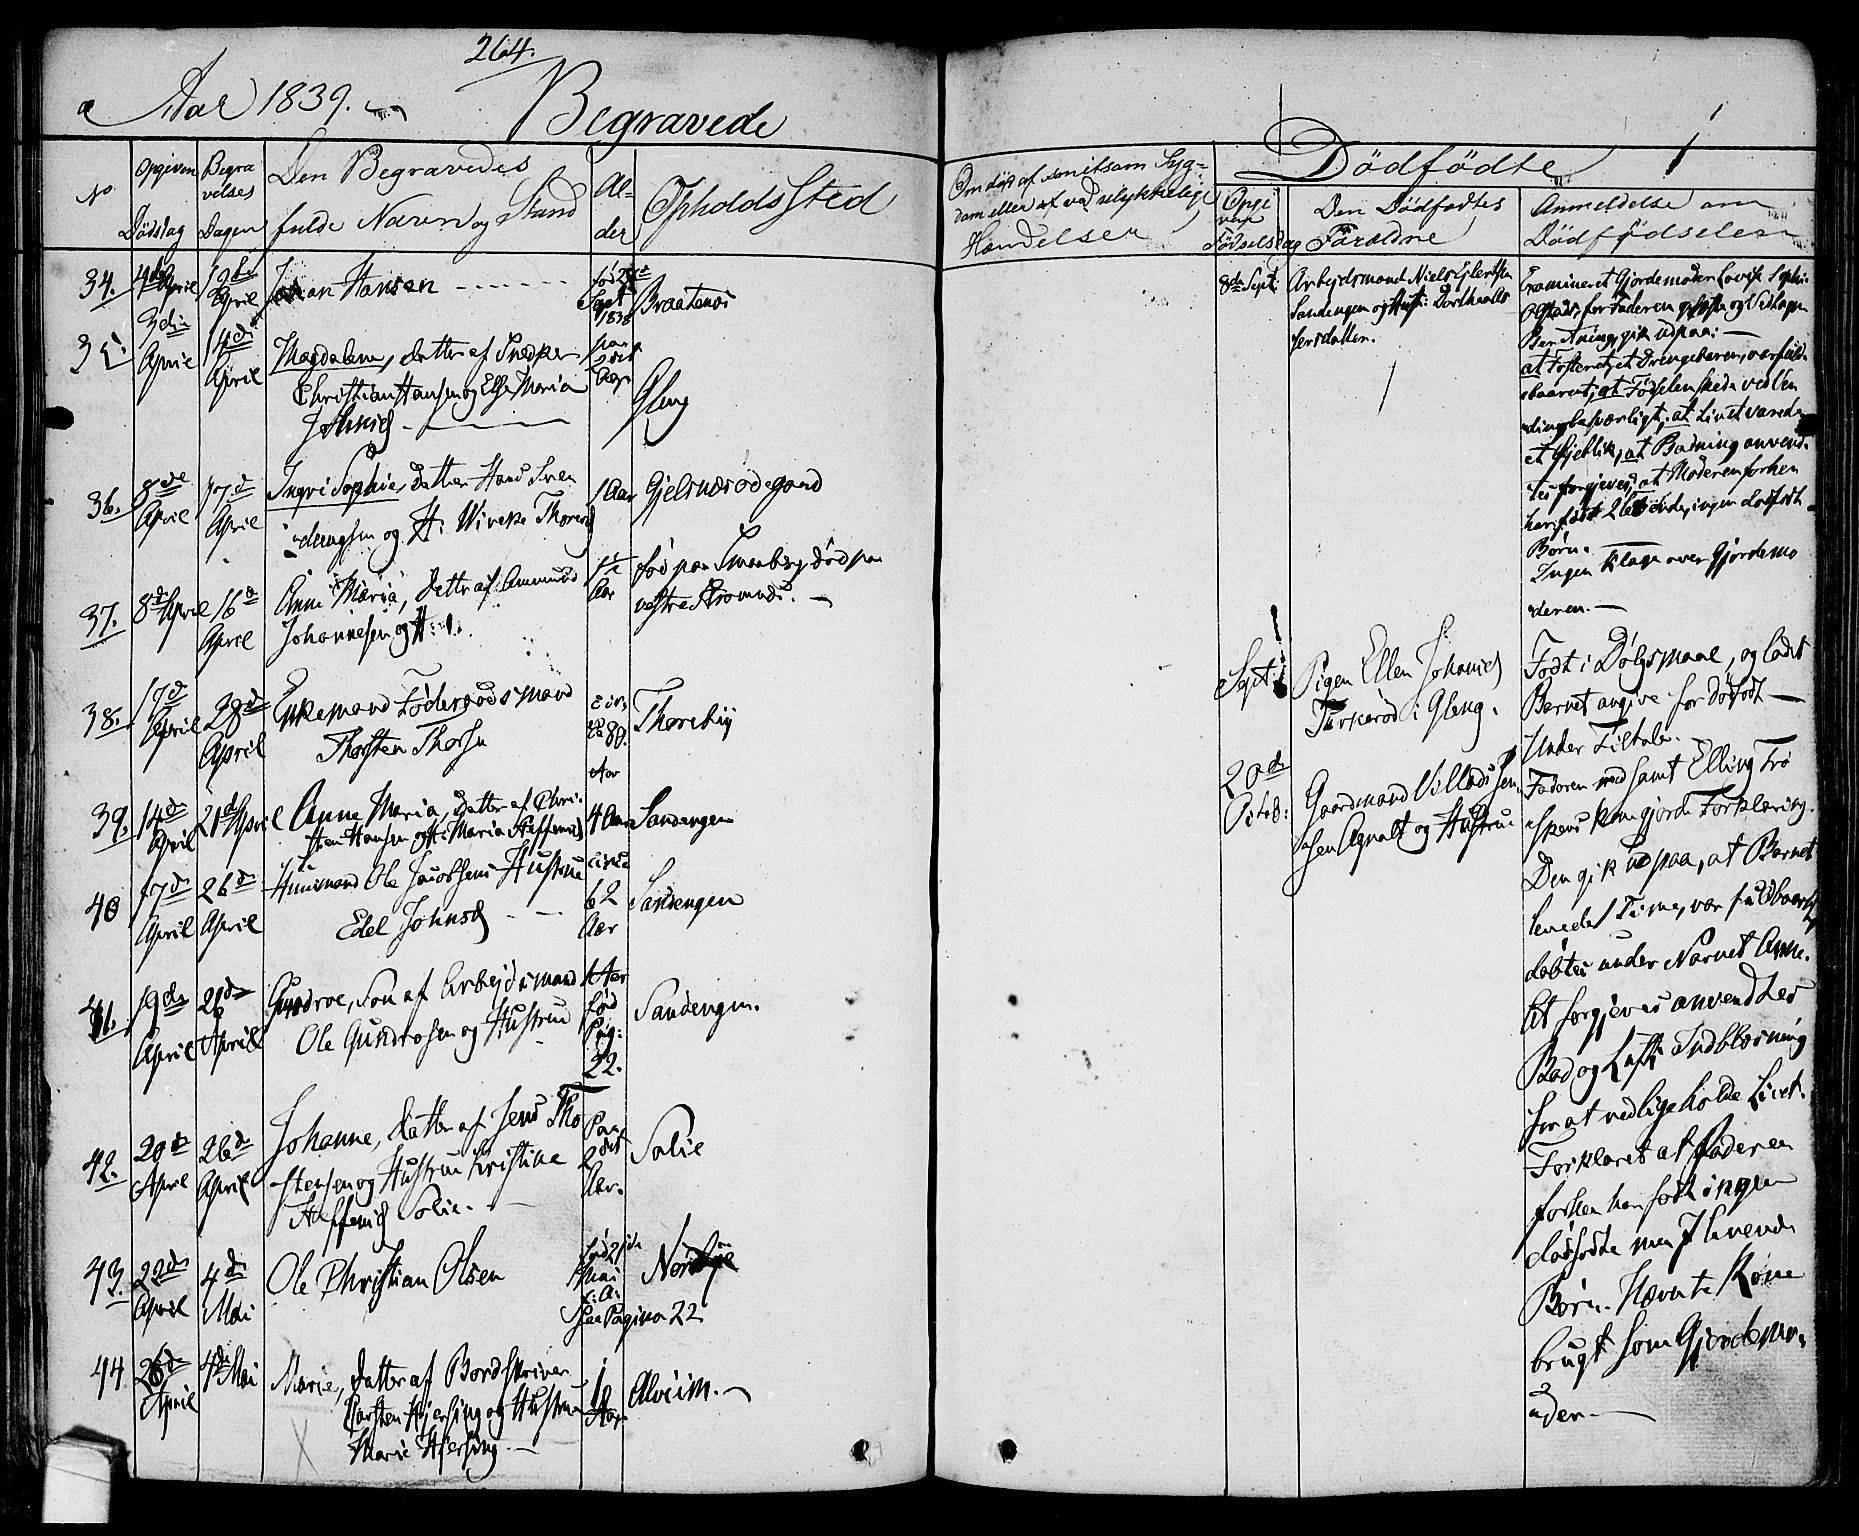 264.
Aar 1839.
Begravede
No
Opgiven Dödsdag
Begravelses Dagen
Den Begravedes
fulde Navn og Stand
Alder
Opholds Sted
34. 4de April 12te April Johan Hansen Sept 1838 Braatenes
35. 3die April 14de April Magdalena, datter af Snedker
Christian Hansen og Else Maria
på 2det Aar Gleng
36. 8de April 17de April Ingri Sophie, datter Hans Sven
og H: Wiveke 1 Aar Gjelsnæsödegaard
37. 8de April 16de April Anne Maria, datter af Ammund
Johannesen og H:
Aar död paa
vestre
38. 17de April 28de April Enkemand Föderaadsmand
Thorsten Thorsen
80 Aar Thorebÿ
39. 14de April 21de April Anne Maria, datter af Chri-
sten Hansen og H: Maria Steffensd
4 Aar Sandengen
40 17de April 26de April Huusmand Ole Jacobsens Hustrue
Edel Johnsd
circa 62 Aar Sandengen
41. 19de April 26de April Gundroe, Sön af Arbejdsmand
Ole Gundrosen og Hustrue
1 Aar född Pag: 22. Sandengen.
42. 20de April 26de April Johanne, datter af Jens Tho
stensen og Hustrue Kristine
Steffensd Solie.
Paa 2det Aar. Solie
43. 22de April 4de Mai Ole Christian Olsen
Mai
Pagina 22
44 26de April 4de Mai Marie, datter af Bordskriver
Carsten Hjersing og Hustrue
Marie Hjersing.
Aar Alvim.
Om död af smitsom Syg-
dom eller af vaadelig ulykkelige
Handelser
Dödfödte
Opgiven Födselsdag
Den Dödfödtes
Foraldre
Anmeldelse om
Dödfödselen
8de Sept: Arbejdsmand Niels Ejlertsen
Sandengen og Hust: Dorthea
Examineret Gjordemoder Lovise Sophie
for Faderen
Beretning, gik ud paa:
at Fosteret, et Drengebarn, var fuld-
baaret, at Födselen skede ved Ven
ding besværligt, at Livet varede
et Öjeblik, at Badning anvend-
tes forgjeves, at Moderen forhen
har födt 2 levende, ingen dödfödt
Börn.
Ingen Klage over Gjordemo
deren.
Sept: Pigen Ellen Johannesd
i Gleng.
Födt i Dölgsmaal, og ladt
Barnet angive for dödfödt
Under Tiltale.
20de Octob: Gaardmand Villads Han-
sen Agnalt og Hustrue
Faderen med samt Elling Trö
Kone gjorde Forklaring.
Den gik ud paa, at Barnet
levede 1 Time, var fuldbaaret,
döbtes under Navnet Anne.
At forgjeves anvendtes
Bad og Lufts Indblæsning
for at vedligeholde Livet.
Forklaret at Faderen
forhen har födt ingen
dödfödte men 7 levende
Börn. Nævnte Kone
brugt som Gjordemo-
der